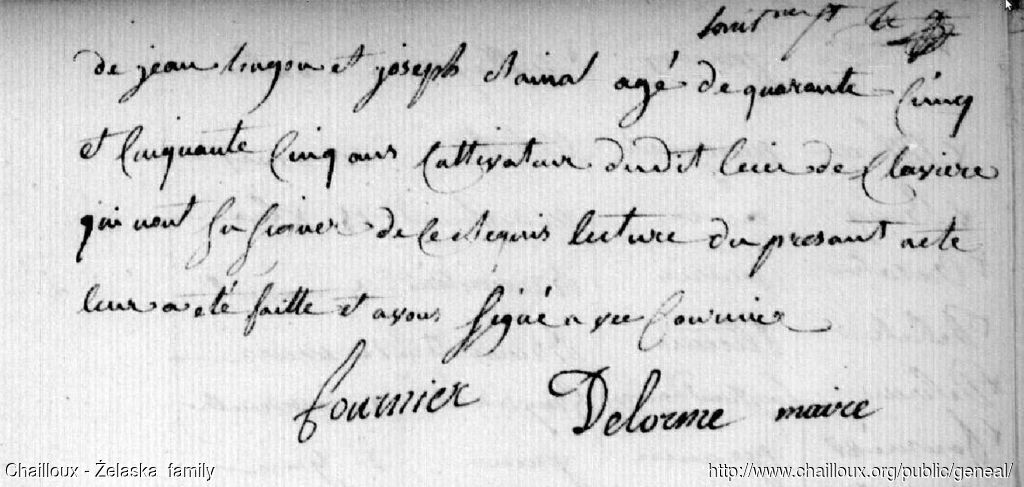 de jean lingou et joseph clainal agé de quarante Cinq
et Cinquante Cinq ans Cultivateur dudit lieu de Claviere
qui nont su signer de ce Requis lecture du présant acte
leur a été faitte et avons Signé avec Fournier
Fournier Delorme maire
Chailloux - Żelaska family
http://www.chailloux.org/public/geneal/